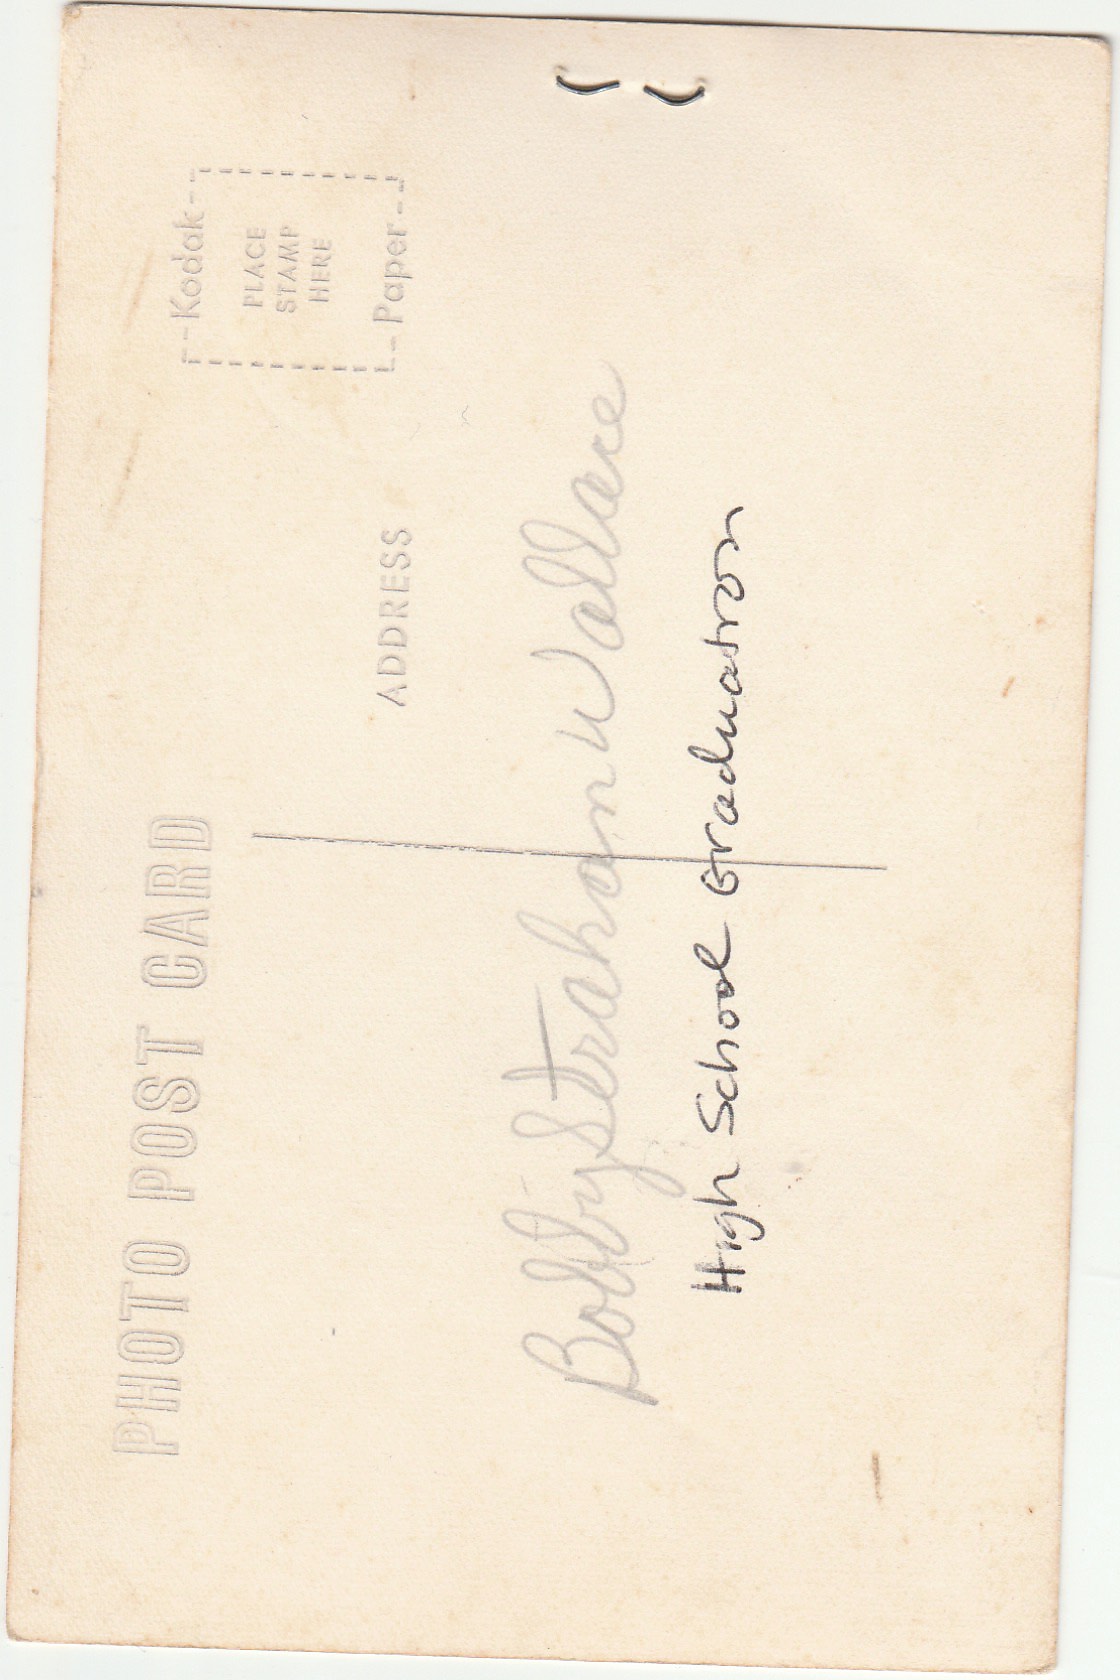 PHOTO POST CARD
Kodak
PLACE
STAMP
HERE
Paper
ADDRESS
Bobby Strahan Wallace
High School Graduation